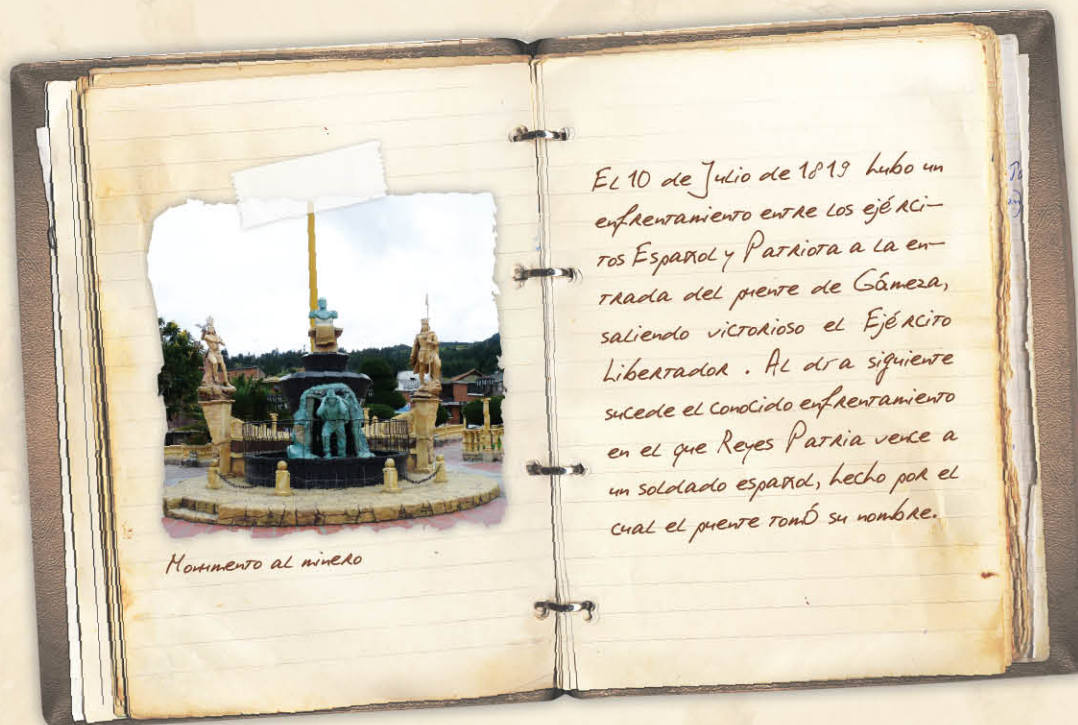 Monumento al minero
El 10 de Julio de 1819 hubo un
enfrentamiento entre los ejérci-
tos Español y Patriota a la en-
trada del puente de Gámeza,
saliendo victorioso el Ejército
Libertador. Al dia siguiente
sucede el conocido enfrentamiento
en el que Reyes Patria vence a
un soldado español, hecho por el
cual el puente tomó su nombre.